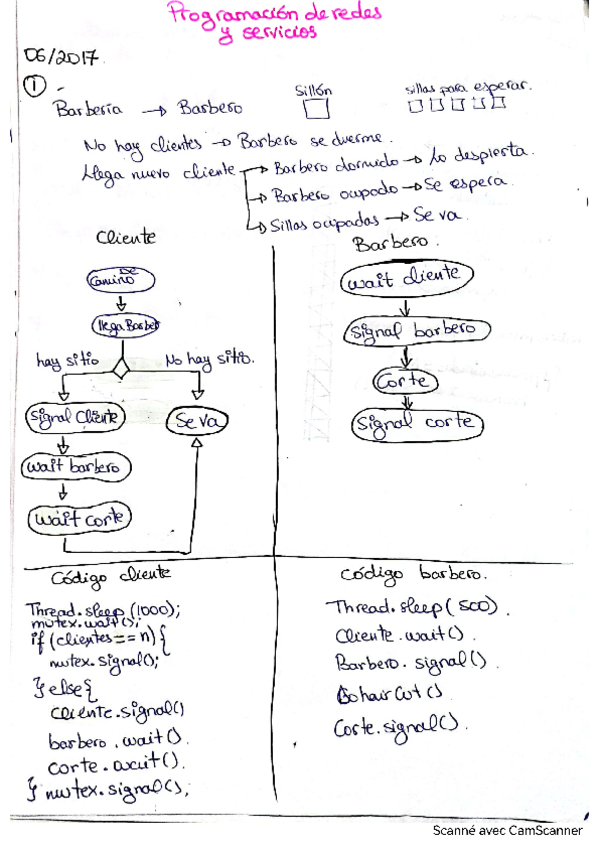 Programación de redes
y servicios
06/2017.
① -
Barbería → Barbero
Sillón
sillas para esperar.
No hay clientes → Barbero se duerme.
Llega nuevo cliente → Barbero dormido → Lo despierta.
→ Barbero ocupado → Se espera.
→ Sillas ocupadas → Se va.
Cliente
De
Camino
llega Barber
hay sitio
No hay sitio.
Signal Cliente
Se va
wait barbero
wait corte
Barbero.
wait cliente
Signal barbero
Corte
Signal corte
Código cliente
Thread.sleep (1000);
mutex.wait();
if (clientes == n) {
mutex.signal();
} else {
cliente.signal()
barbero.wait().
corte.wait().
} mutex.signal();
Código barbero.
Thread.sleep (500).
Cliente.wait().
Barbero.signal().
GohairCut()
Corte.signal().
Scanné avec CamScanner